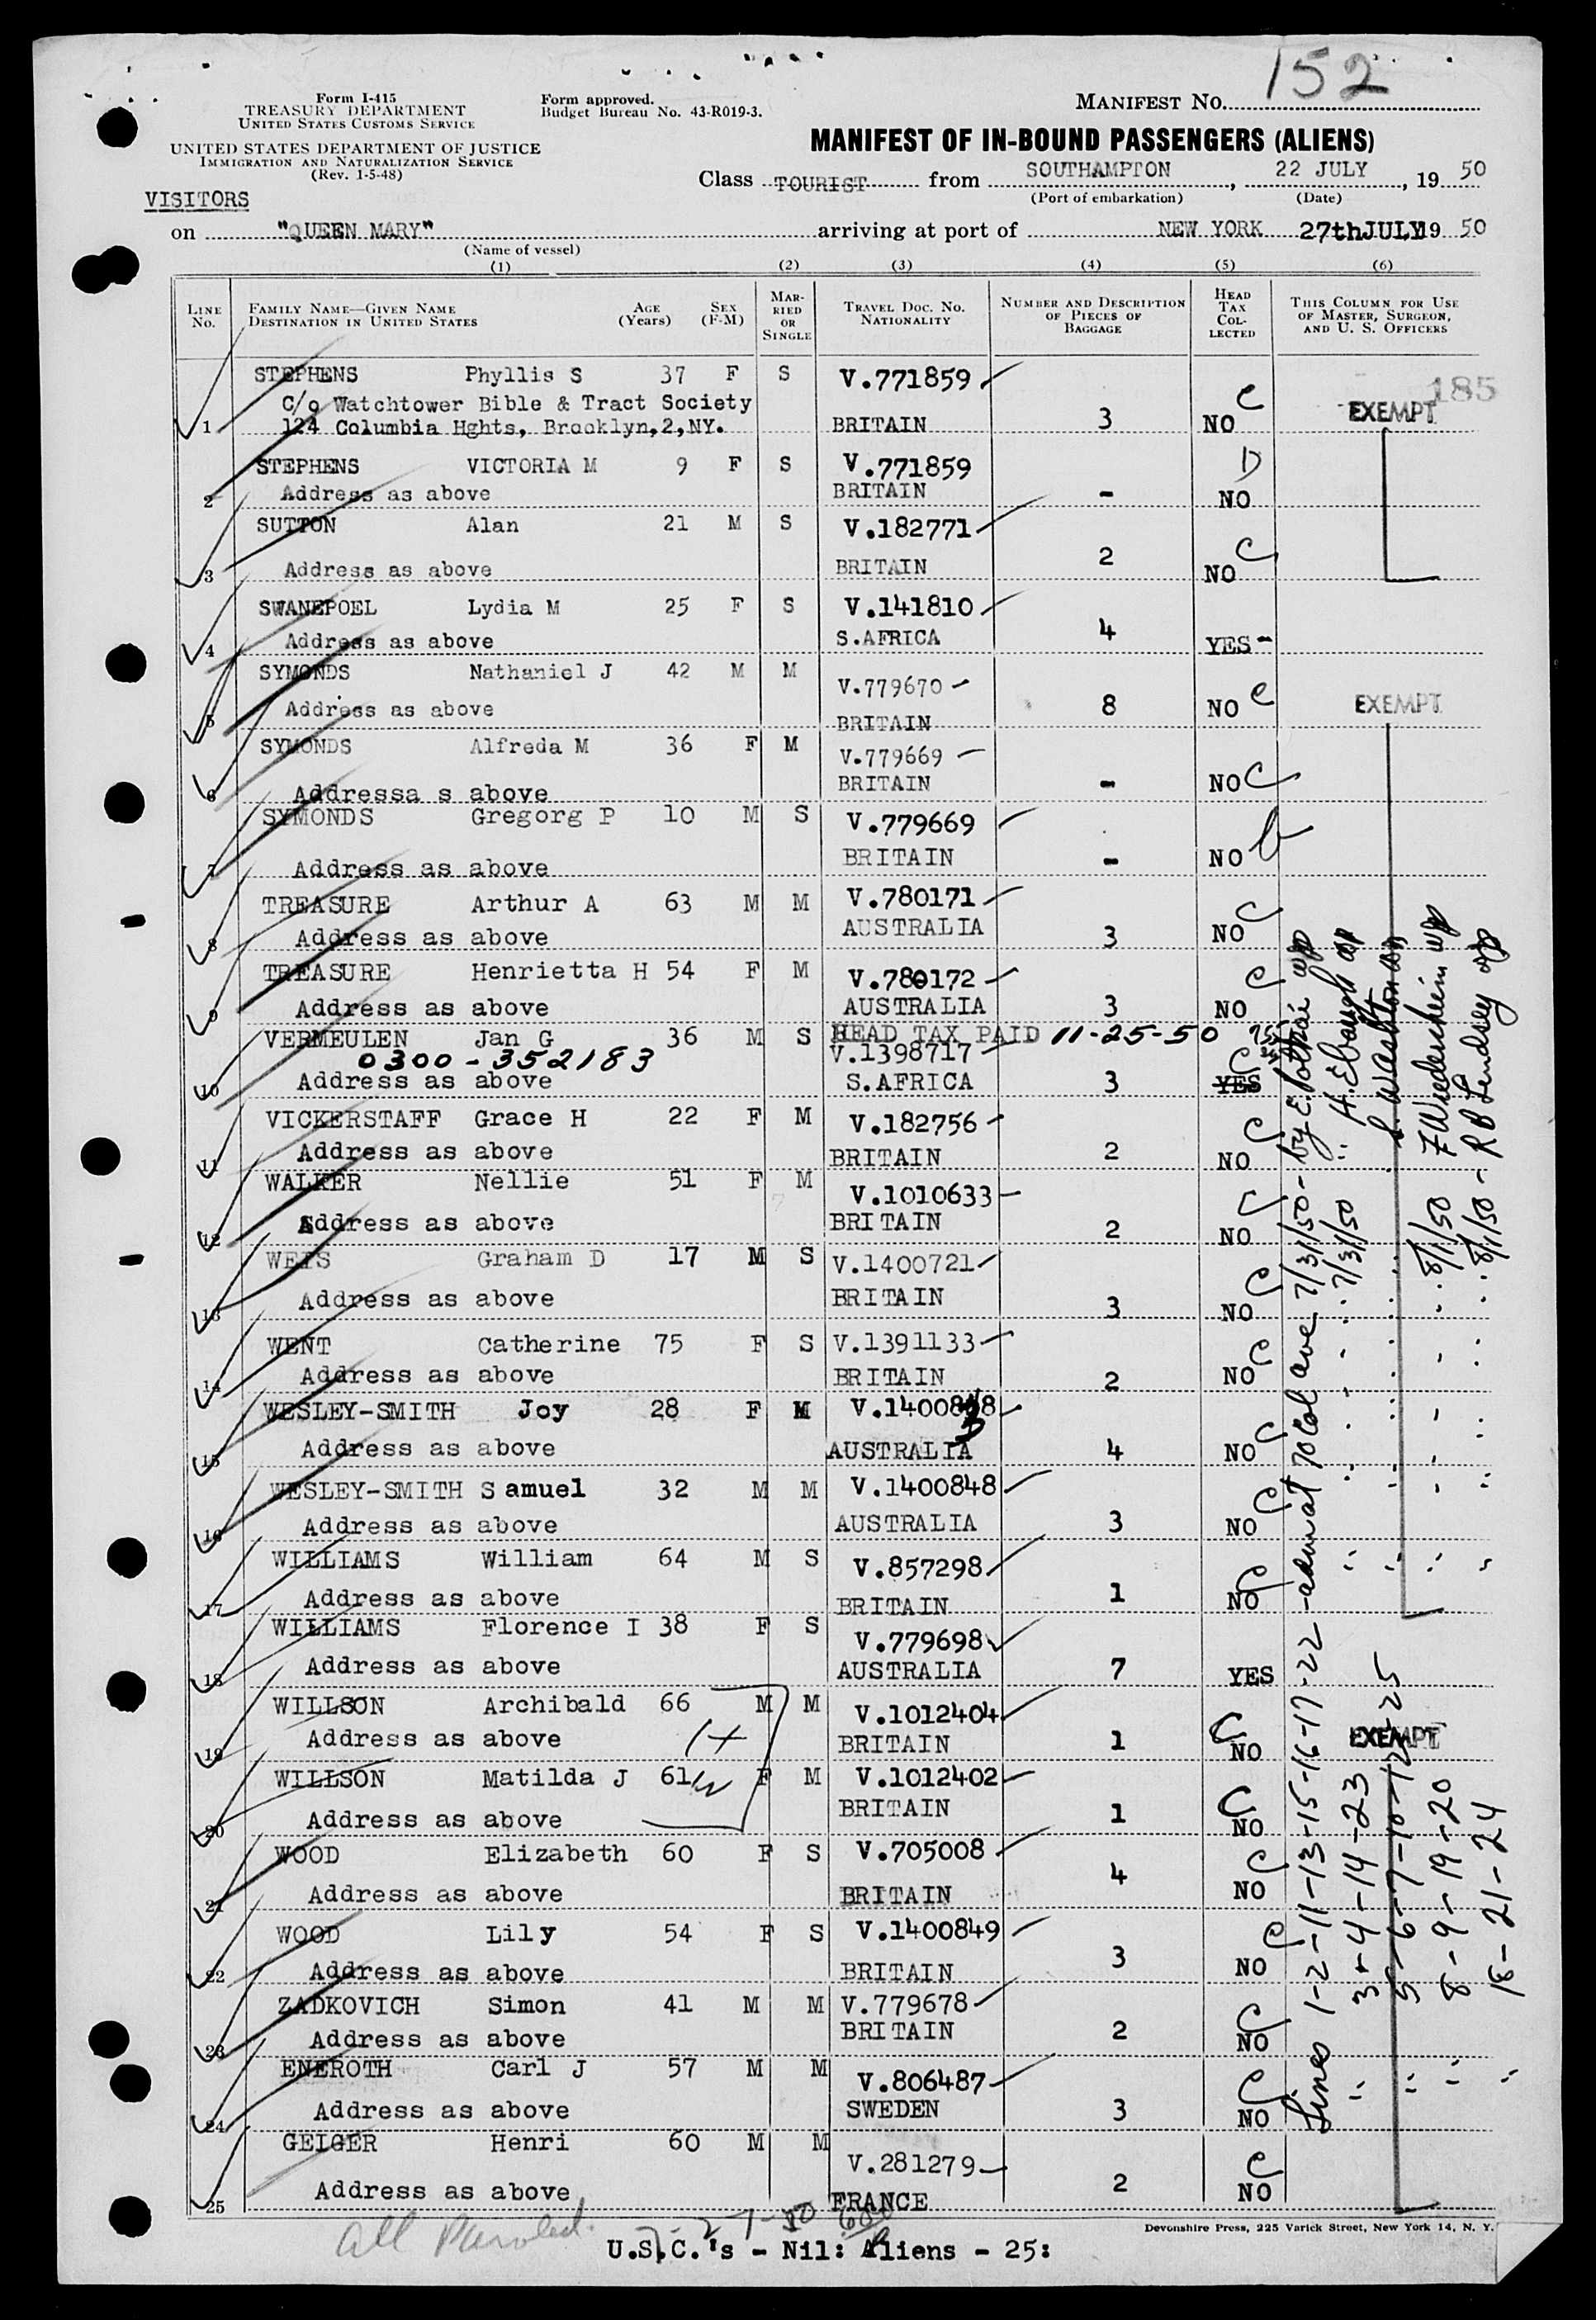 152
Form I-415
TREASURY DEPARTMENT
UNITED STATES CUSTOMS SERVICE
Form approved.
Budget Bureau No. 43-R019-3.
MANIFEST NO.
UNITED STATES DEPARTMENT OF JUSTICE
IMMIGRATION AND NATURALIZATION SERVICE
(Rev. 1-5-48)
MANIFEST OF IN-BOUND PASSENGERS (ALIENS)
Class TOURIST from SOUTHAMPTON, 22 JULY, 19 50
(Port of embarkation) (Date)
VISITORS
on "QUEEN MARY" arriving at port of NEW YORK 27thJULY19 50
(Name of vessel)
(1) (2) (3) (4) (5) (6)
LINE No. FAMILY NAME—GIVEN NAME DESTINATION IN UNITED STATES AGE (Years) SEX (F-M) MARRIED OR SINGLE TRAVEL DOC. NO. NATIONALITY NUMBER AND DESCRIPTION OF PIECES OF BAGGAGE HEAD TAX COLLECTED THIS COLUMN FOR USE OF MASTER, SURGEON, AND U. S. OFFICERS
STEPHENS Phyllis S 37 F S V.771859
185
C/o Watchtower Bible & Tract Society C EXEMPT
1 124 Columbia Hghts, Brooklyn,2,NY. BRITAIN 3 NO
STEPHENS VICTORIA M 9 F S V.771859 D
2 Address as above BRITAIN - NO
SUTTON Alan 21 M S V.182771
3 Address as above BRITAIN 2 NO C
SWANEPOEL Lydia M 25 F S V.141810
4 Address as above S.AFRICA 4 YES-
SYMONDS Nathaniel J 42 M M V.779670
5 Address as above BRITAIN 8 NO C EXEMPT
SYMONDS Alfreda M 36 F M V.779669
6 Addressa s above BRITAIN - NO C
SYMONDS Gregorg P 10 M S V.779669
7 Address as above BRITAIN - NO
TREASURE Arthur A 63 M M V.780171
8 Address as above AUSTRALIA 3 NO C
TREASURE Henrietta H 54 F M V.780172
9 Address as above AUSTRALIA 3 NO C
VERMEULEN Jan G 36 M S HEAD TAX PAID 11-25-50
0300-352183 V.1398717
10 Address as above S.AFRICA 3 YES C
VICKERSTAFF Grace H 22 F M V.182756
11 Address as above BRITAIN 2 NO C
WALKER Nellie 51 F M V.1010633
12 Address as above BRITAIN 2 NO C
WEIS Graham D 17 M S V.1400721
13 Address as above BRITAIN 3 NO C
WENT Catherine 75 F S V.1391133
14 Address as above BRITAIN 2 NO C
WESLEY-SMITH Joy 28 F M
15 Address as above AUSTRALIA 4 NO C
WESLEY-SMITH Samuel 32 M M V.1400848
16 Address as above AUSTRALIA 3 NO C
WILLIAMS William 64 M S V.857298
17 Address as above BRITAIN 1 NO C
WILLIAMS Florence I 38 F S V.779698
18 Address as above AUSTRALIA 7 YES
WILLSON Archibald 66 M M V.1012404
19 Address as above BRITAIN 1 NO C EXEMPT
WILLSON Matilda J 61 F M V.1012402
20 Address as above BRITAIN 1 NO C
WOOD Elizabeth 60 F S V.705008
21 Address as above BRITAIN 4 NO C
WOOD Lily 54 F S V.1400849
22 Address as above BRITAIN 3 NO C
ZADKOVICH Simon 41 M M V.779678
23 Address as above BRITAIN 2 NO C
ENEROTH Carl J 57 M M V.806487
24 Address as above SWEDEN 3 NO C
GEIGER Henri 60 M M V.281279
25 Address as above FRANCE 2 NO C
Lines 1-2-11-13-15-16-17-22 - adm at 70 Col ave 7/31/50 - by
" 3-4-14-23 " " " " 7/31/50 " H. Ebaugh
5-6-7-10-12-25 " " " "
" 8-9-19-20 " " " " 8/1/50
" 18-21-24 " " " " 8/1/50 - R B Lindsey
Devonshire Press, 225 Varick Street, New York 14, N. Y.
All Paroled. 7-27-50
U.S.C.'s - Nil: Aliens - 25: